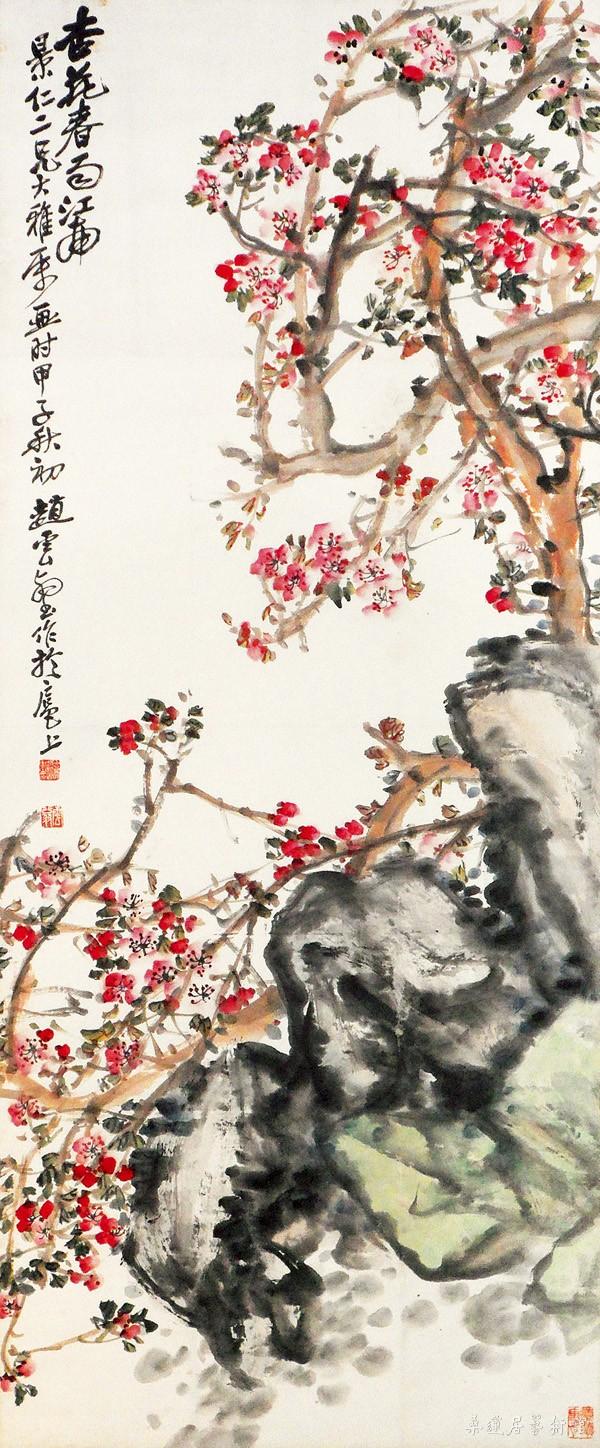 杏花春雨江南
景仁二兄大雅属 时甲子秋初 趙雲壑作於扈上
桑蓮居藝術館